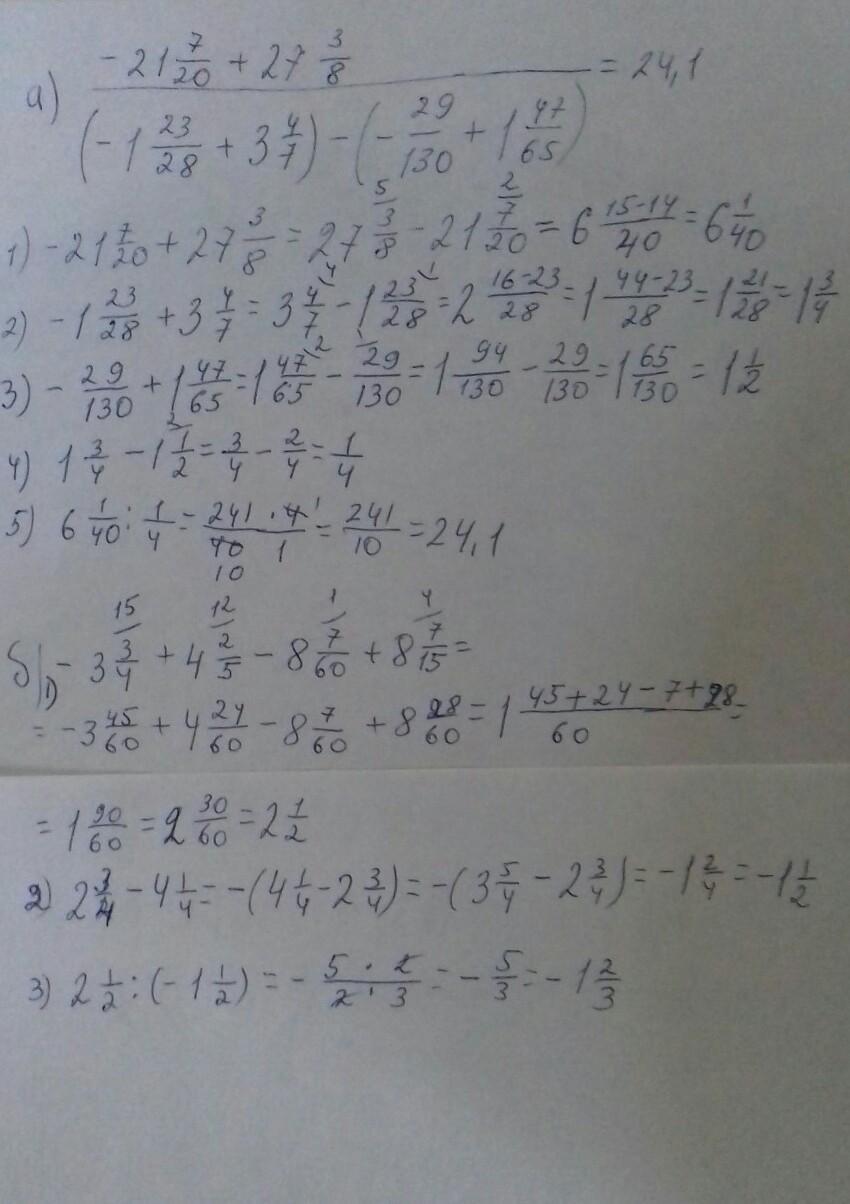 а) (-21 7/20 + 27 3/8) / ((-1 23/28 + 3 4/7) - (-29/130 + 1 47/65)) = 24,1
1) -21 7/20 + 27 3/8 = 27 3/8 - 21 7/20 = 6 (15-14)/40 = 6 1/40
2) -1 23/28 + 3 4/7 = 3 4/7 - 1 23/28 = 2 (16-23)/28 = 1 (44-23)/28 = 1 21/28 = 1 3/4
3) - 29/130 + 1 47/65 = 1 47/65 - 29/130 = 1 94/130 - 29/130 = 1 65/130 = 1 1/2
4) 1 3/4 - 1 1/2 = 3/4 - 2/4 = 1/4
5) 6 1/40 : 1/4 = (241 · 4)/(40 1) = 241/10 = 24,1
б) 1) - 3 3/4 + 4 2/5 - 8 7/60 + 8 7/15 =
= -3 45/60 + 4 24/60 - 8 7/60 + 8 28/60 = 1 (45+24-7+28)/60 =
= 1 90/60 = 2 30/60 = 2 1/2
2) 2 3/4 - 4 1/4 = -(4 1/4 - 2 3/4) = -(3 5/4 - 2 3/4) = -1 2/4 = -1 1/2
3) 2 1/2 : (-1 1/2) = - (5 · 2)/(2 · 3) = - 5/3 = - 1 2/3